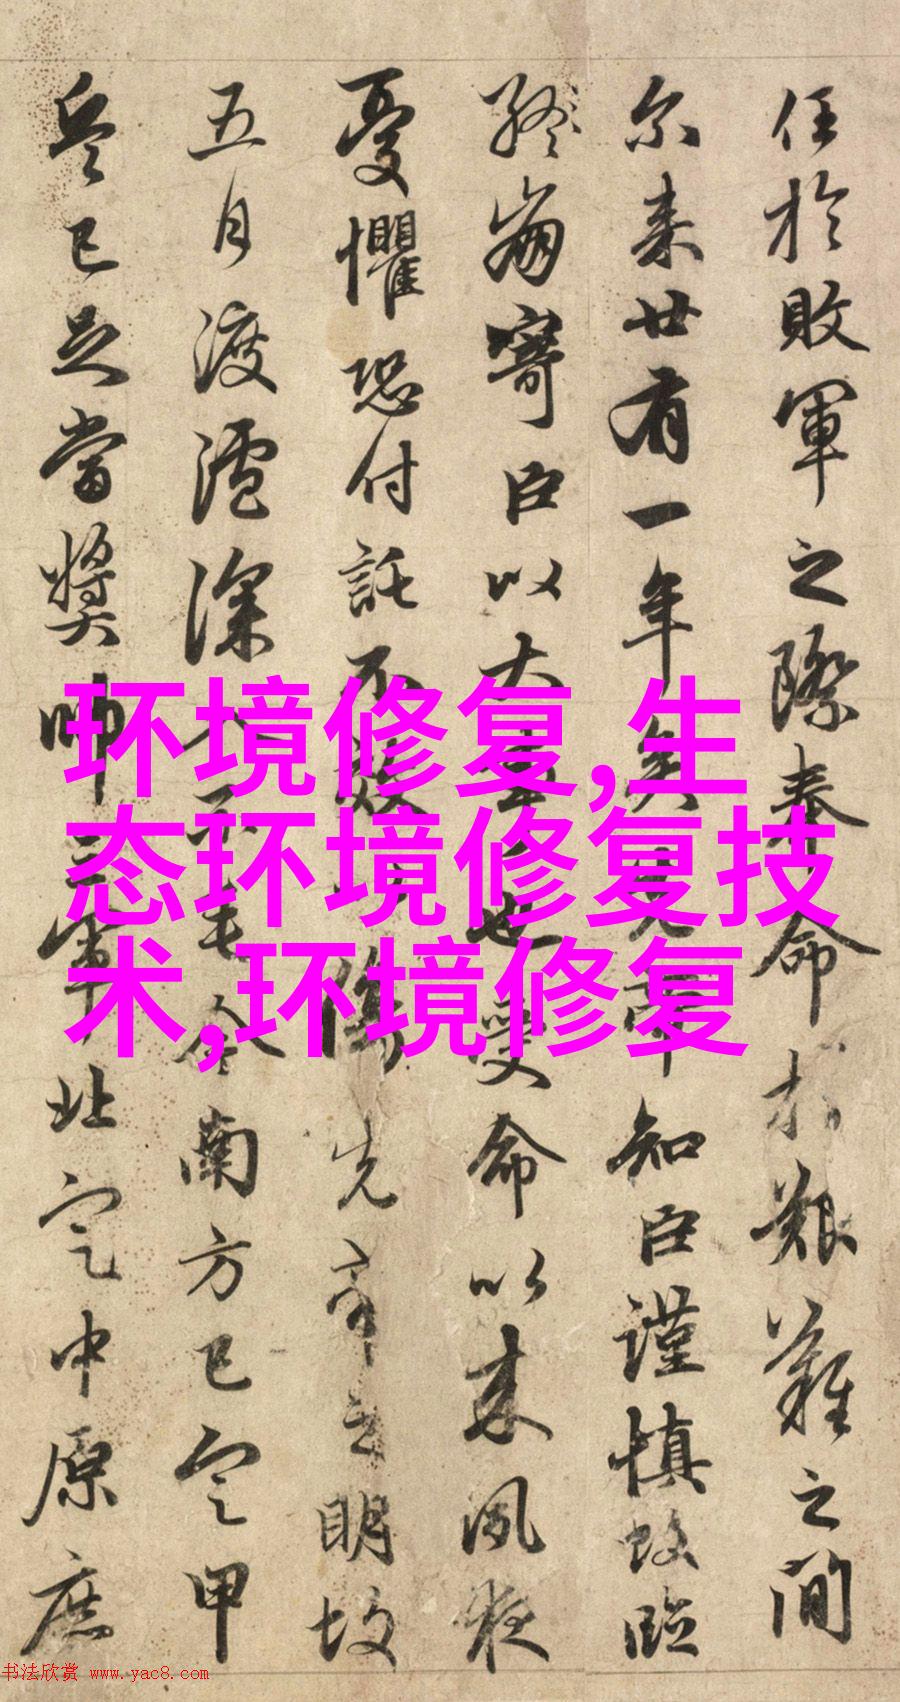 任於敗軍之際奉命於艱難之間
尔来廿有一年矣先帝知臣謹慎故臨
終崩寄臣以大事也受命以来夙夜
憂懼恐付託不效傷先帝之明故
五月渡瀘深入不毛今南方已定甲
兵已足當奬帥三軍北定中原庶
环境修复,生
态环境修复技
术,环境修复
书法欣赏 www.yac8.com